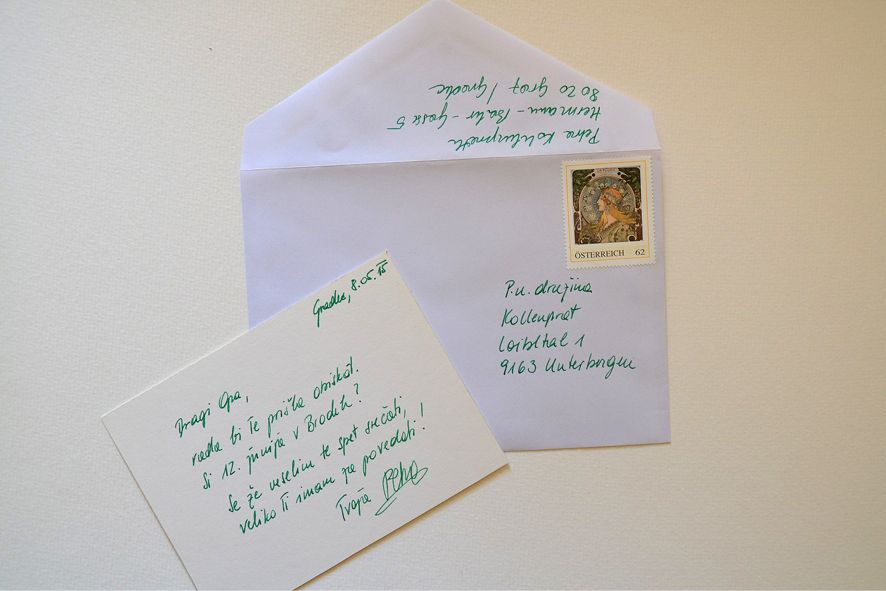 Petra Kohlenprath
Hermann-Bahr-Gasse 5
8020 Graz / Gradec
ÖSTERREICH 62
P.n. družina
Kollenprat
Loibltal 1
9163 Unterbergen
Gradec, 8.05.15
Dragi Opa,
rada bi Te prišla obiskat.
Si 12. junija v Brodeh?
Se že veselim te spet srečati,
veliko Ti imam za povedati!
Tvoja Petra